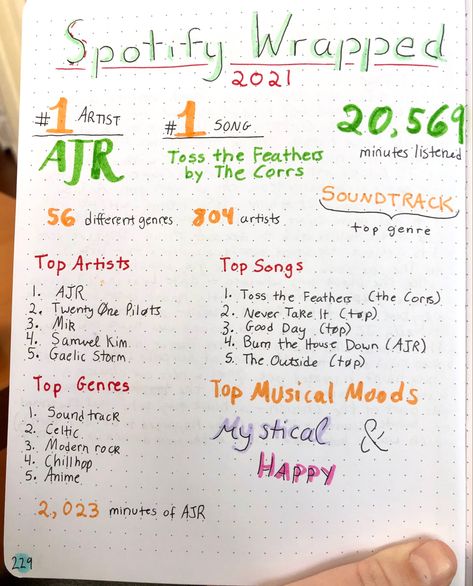 Spotify Wrapped
2021
#1 ARTIST
AJR
#1 SONG
Toss the Feathers
by The Corrs
20,569
minutes listened
56 different genres 804 artists
SOUNDTRACK
top genre
Top Artists
1. AJR
2. Twenty Øne Piløts
3. Mik
4. Samuel Kim
5. Gaelic Storm
Top Songs
1. Toss the Feathers (the Corrs)
2. Never Take It (tøp)
3. Good Day (tøp)
4. Burn the House Down (AJR)
5. The Outside (tøp)
Top Genres
1. Soundtrack
2. Celtic
3. Modern rock
4. Chillhop
5. Anime
Top Musical Moods
Mystical &
HAPPY
2,023 minutes of AJR
229